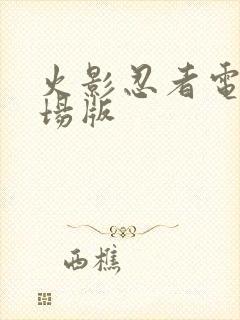 火影忍者電
場版
西樵